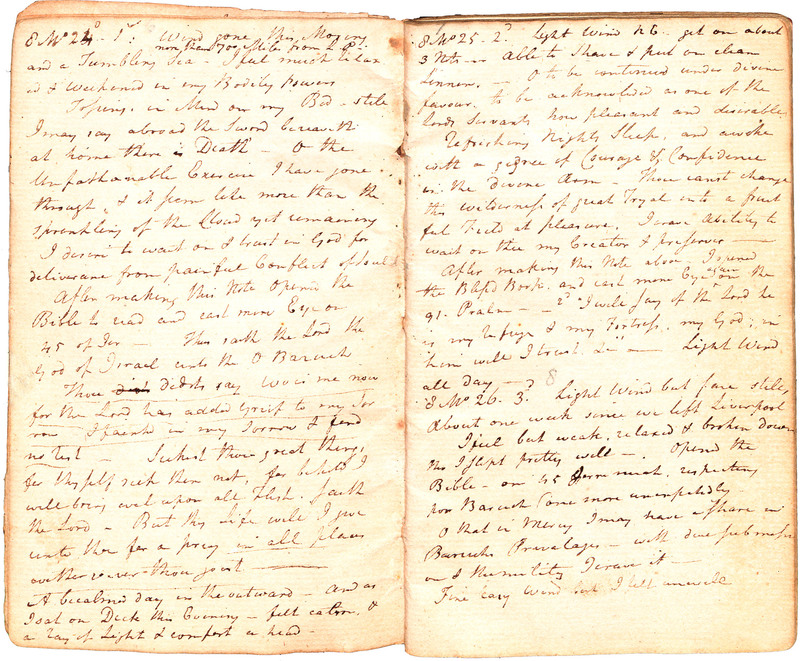 8 Mo 24. 1st: Wind gone this Morning
more than 700 Miles from L P.
and a Tumbling Sea - I feel much relax
ed & weakened in my Bodily powers
Tossing, in Mind on my Bed - still
I may say abroad the Sword bereaveth
at home there is Death - O the
Unfathomable Exercise I have gone
through, & it seem like more than the
sprinkling of the Cloud yet remaining
I desire to wait on & trust in God for
deliverance from painful Conflict of soul
After making this Note Opened the
Bible to read and cast more Eye on
45 of Jer - Thus saith the Lord the
God of Israel unto the O Baruch
Thou didst say Wo is me now
for the Lord has added grief to my Sor
row I fainted in my Sorrow & find
no rest - Seekest thou great things
for thyself seek them not, for behold I
will bring evil upon all Flesh. saith
the Lord - But thy life will I give
unto thee for a prey in all places
whither so ever thou goest
A becalmed day in the outward - and as
I sat on Deck this Evening - felt calm, &
a ray of Light & comfort a head -
8 Mo 25. 2d. Light Wind NE. get on about
3 Nots - Able to Shave & put on clean
Linnen. - O to be continued under divine
favour. to be acknowledged as one of the
lords Servants how pleasant and desirable
Refreshing Nights Sleep, and awoke
with a degree of Courage & Confidence
in the divine Arm - Thou canst change
this wilderness of great Tryal into a fruit
ful Field at pleasure. I crave Ability to
wait on thee my Creator & preserver -
After making this Note above - I opened
the Blessed Book. and cast more Eye again on the
91. Psalm - 2d "I will say of the Lord he
is my refuge & my Fortress, my God; in
him will I trust. &c" - Light Wind
all day - 8
8 Mo 26. 3d. Light Wind but fare still
About one week since we left Liverpool
I feel but weak, relaxed & broken down
tho I slept pretty well - . Opened the
Bible - on 45 Jerremiah, respecting
poor Baruch Come more unexpectedly
O that in Mercy I may have a Share in
Baruchs Privalages - with due submissi
on & Humility I crave it -
Fine Easy Wind but I felt unwell